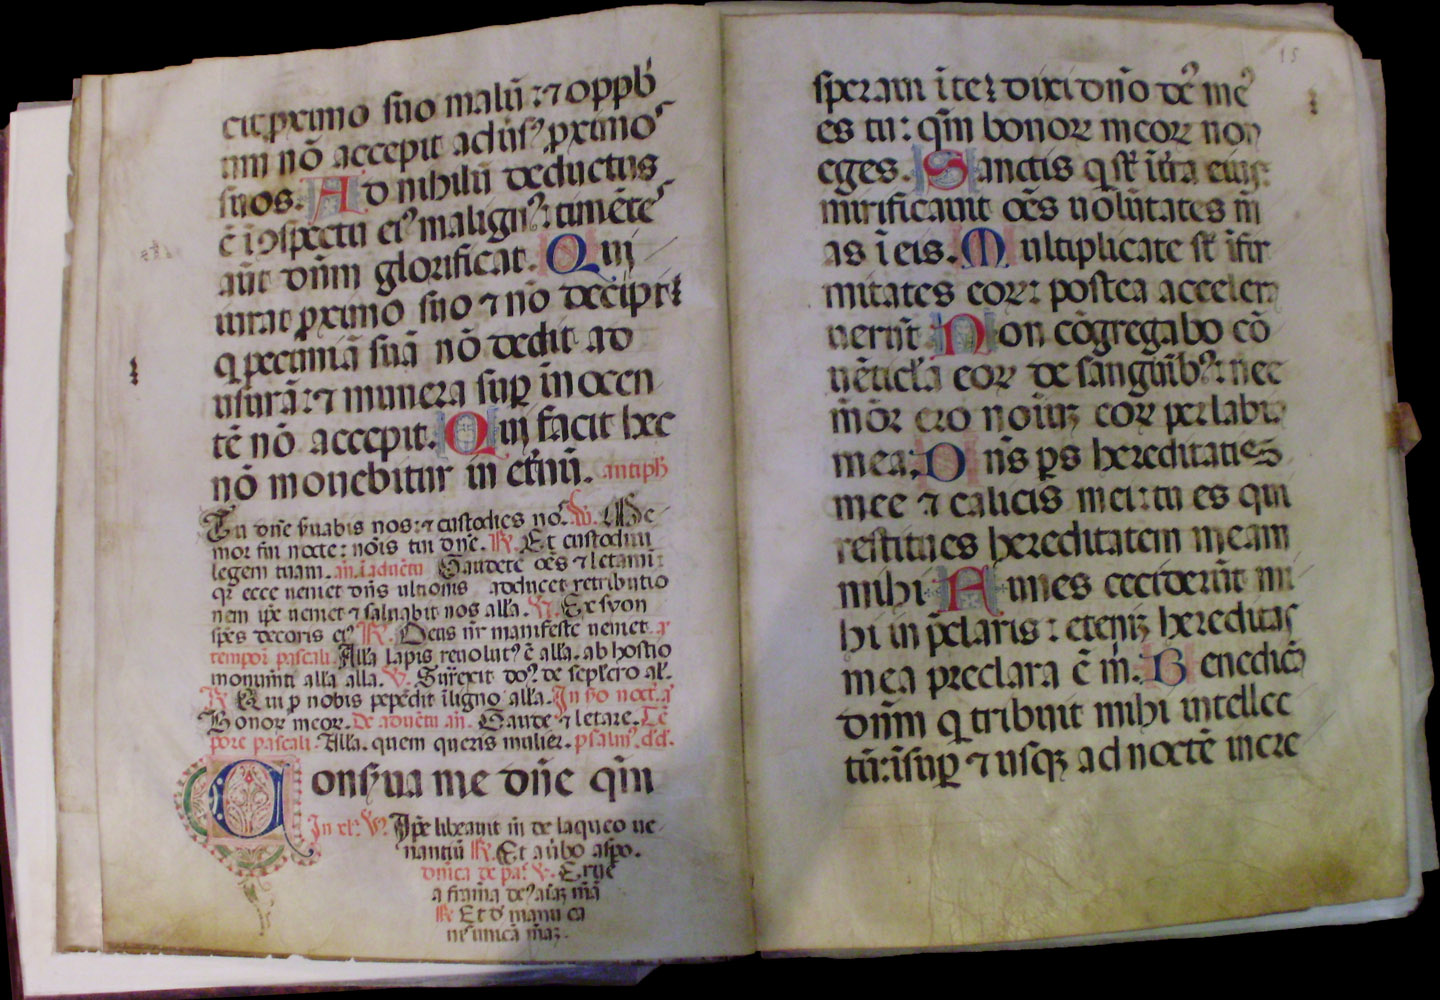 cit p̱ximo suo malū: ⁊ oppb̓
um nō accepit adũs̓ p̱ximo
suos. Ad nihilū deductus
ē ī ↄspectu ei̓ malign̓: timēte
aūt dn̄m glorificat. Qui
iurat p̱ximo suo ⁊ nō decipit:
q pecuniā suā nō dedit ad
usurā: ⁊ munera sup̱ īnocen
tē nō accepit. Qui facit hec
nō mouebitur in et̓nū. antiph̄
Tu dn̄e s̓uabis nos: ⁊ custodies no̓. V̄. Me
mor fui nocte: nōis tui dn̄e. R̄. Et custodiui
legem tuam. an̄. ī aduētu Gaudete oēs ⁊ letamī:
qr̄ ecce ueniet dn̄s ultiōnis adducet retributio
nem ip̄e ueniet ⁊ saluabit nos all̄a. V̄. Ex syon
spēs decoris ei̓ R̄. Deus nr̄ manifeste ueniet. a
tempor̄ pascali. All̄a lapis reuolut̓ ē all̄a. ab hostio
monumīti all̄a all̄a. V̄. Surrexit do̓. de sepl̄cro al̄.
R̄ Qui p̱ nobis pepēdit ī ligno all̄a. In s̄o noct̄. a̓
Honoꝝ meoꝝ. De aduētu an̄. Gaude ⁊ letare. Tē
pore pascali. All̄a. quem queris mulier. psalm̓. d̄d̄.
Cons̓ua me dn̄e qm̄
In xl̄: V̄. Ip̄e liberauit m̄ de laqueo ue
nantiū R̄. Et a ūbo asp̱o.
dn̄ica de pa: V̄. Erue
a framā de̓ aīaꝫ mā
R̄ Et d̓ manu ca
nis unicā māꝫ.
15
speraui ī te: dixi dn̄o de̓ me̓
es tu: qm̄ bonoꝝ meoꝝ non
eges. Sanctis q sr̄ ī t̄ra eius:
mirificauit oēs uolūtates m̄
as ī eis. Multiplicate sr̄ īfir
mitates eoꝝ: postea acceler
uerūt Non cōgregabo cō
uētic̄la eoꝝ de sanguīb̓: nec
m̄ōr ero noīuꝫ eoꝝ per labi
mea: Dn̄s ps̄ hereditatis
mee ⁊ calicis mei: tu es qui
restitues hereditatem meam
mihi Funes ceciderūt mi
hi in p̄claris: eteniꝫ hereditas
mea preclara ē m̄. Benedicā
dn̄m q tribuit mihi intellec
tū: īsup̱ ⁊ usqꝫ ad noctē incre